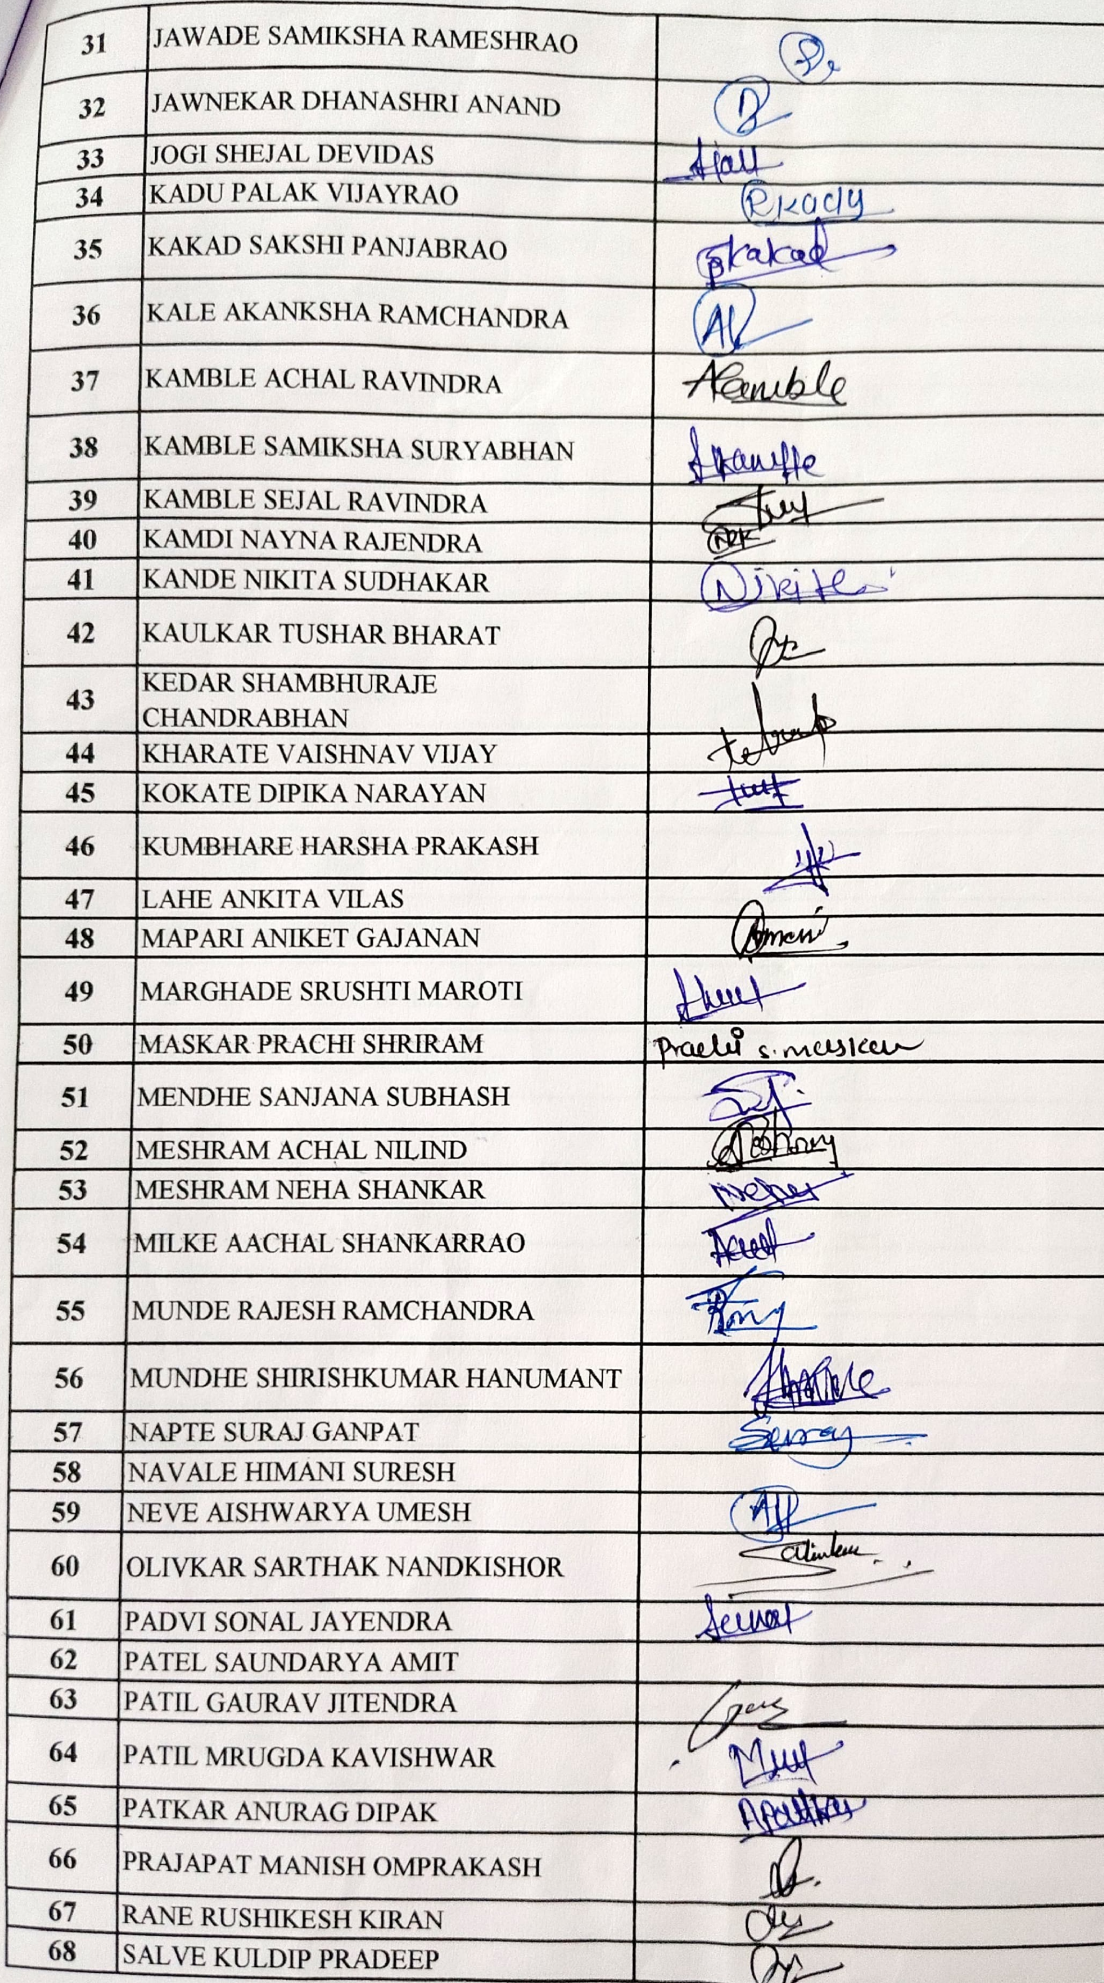 31 JAWADE SAMIKSHA RAMESHRAO
32 JAWNEKAR DHANASHRI ANAND
33 JOGI SHEJAL DEVIDAS
34 KADU PALAK VIJAYRAO Pkadu
35 KAKAD SAKSHI PANJABRAO Kakad
36 KALE AKANKSHA RAMCHANDRA
37 KAMBLE ACHAL RAVINDRA AKamble
38 KAMBLE SAMIKSHA SURYABHAN
39 KAMBLE SEJAL RAVINDRA
40 KAMDI NAYNA RAJENDRA NRK
41 KANDE NIKITA SUDHAKAR Nikita
42 KAULKAR TUSHAR BHARAT
43 KEDAR SHAMBHURAJE
CHANDRABHAN
44 KHARATE VAISHNAV VIJAY
45 KOKATE DIPIKA NARAYAN
46 KUMBHARE HARSHA PRAKASH
47 LAHE ANKITA VILAS
48 MAPARI ANIKET GAJANAN
49 MARGHADE SRUSHTI MAROTI
50 MASKAR PRACHI SHRIRAM Prachi S. Maskar
51 MENDHE SANJANA SUBHASH
52 MESHRAM ACHAL NILIND
53 MESHRAM NEHA SHANKAR
54 MILKE AACHAL SHANKARRAO
55 MUNDE RAJESH RAMCHANDRA
56 MUNDHE SHIRISHKUMAR HANUMANT
57 NAPTE SURAJ GANPAT
58 NAVALE HIMANI SURESH
59 NEVE AISHWARYA UMESH
60 OLIVKAR SARTHAK NANDKISHOR
61 PADVI SONAL JAYENDRA
62 PATEL SAUNDARYA AMIT
63 PATIL GAURAV JITENDRA
64 PATIL MRUGDA KAVISHWAR
65 PATKAR ANURAG DIPAK
66 PRAJAPAT MANISH OMPRAKASH
67 RANE RUSHIKESH KIRAN
68 SALVE KULDIP PRADEEP